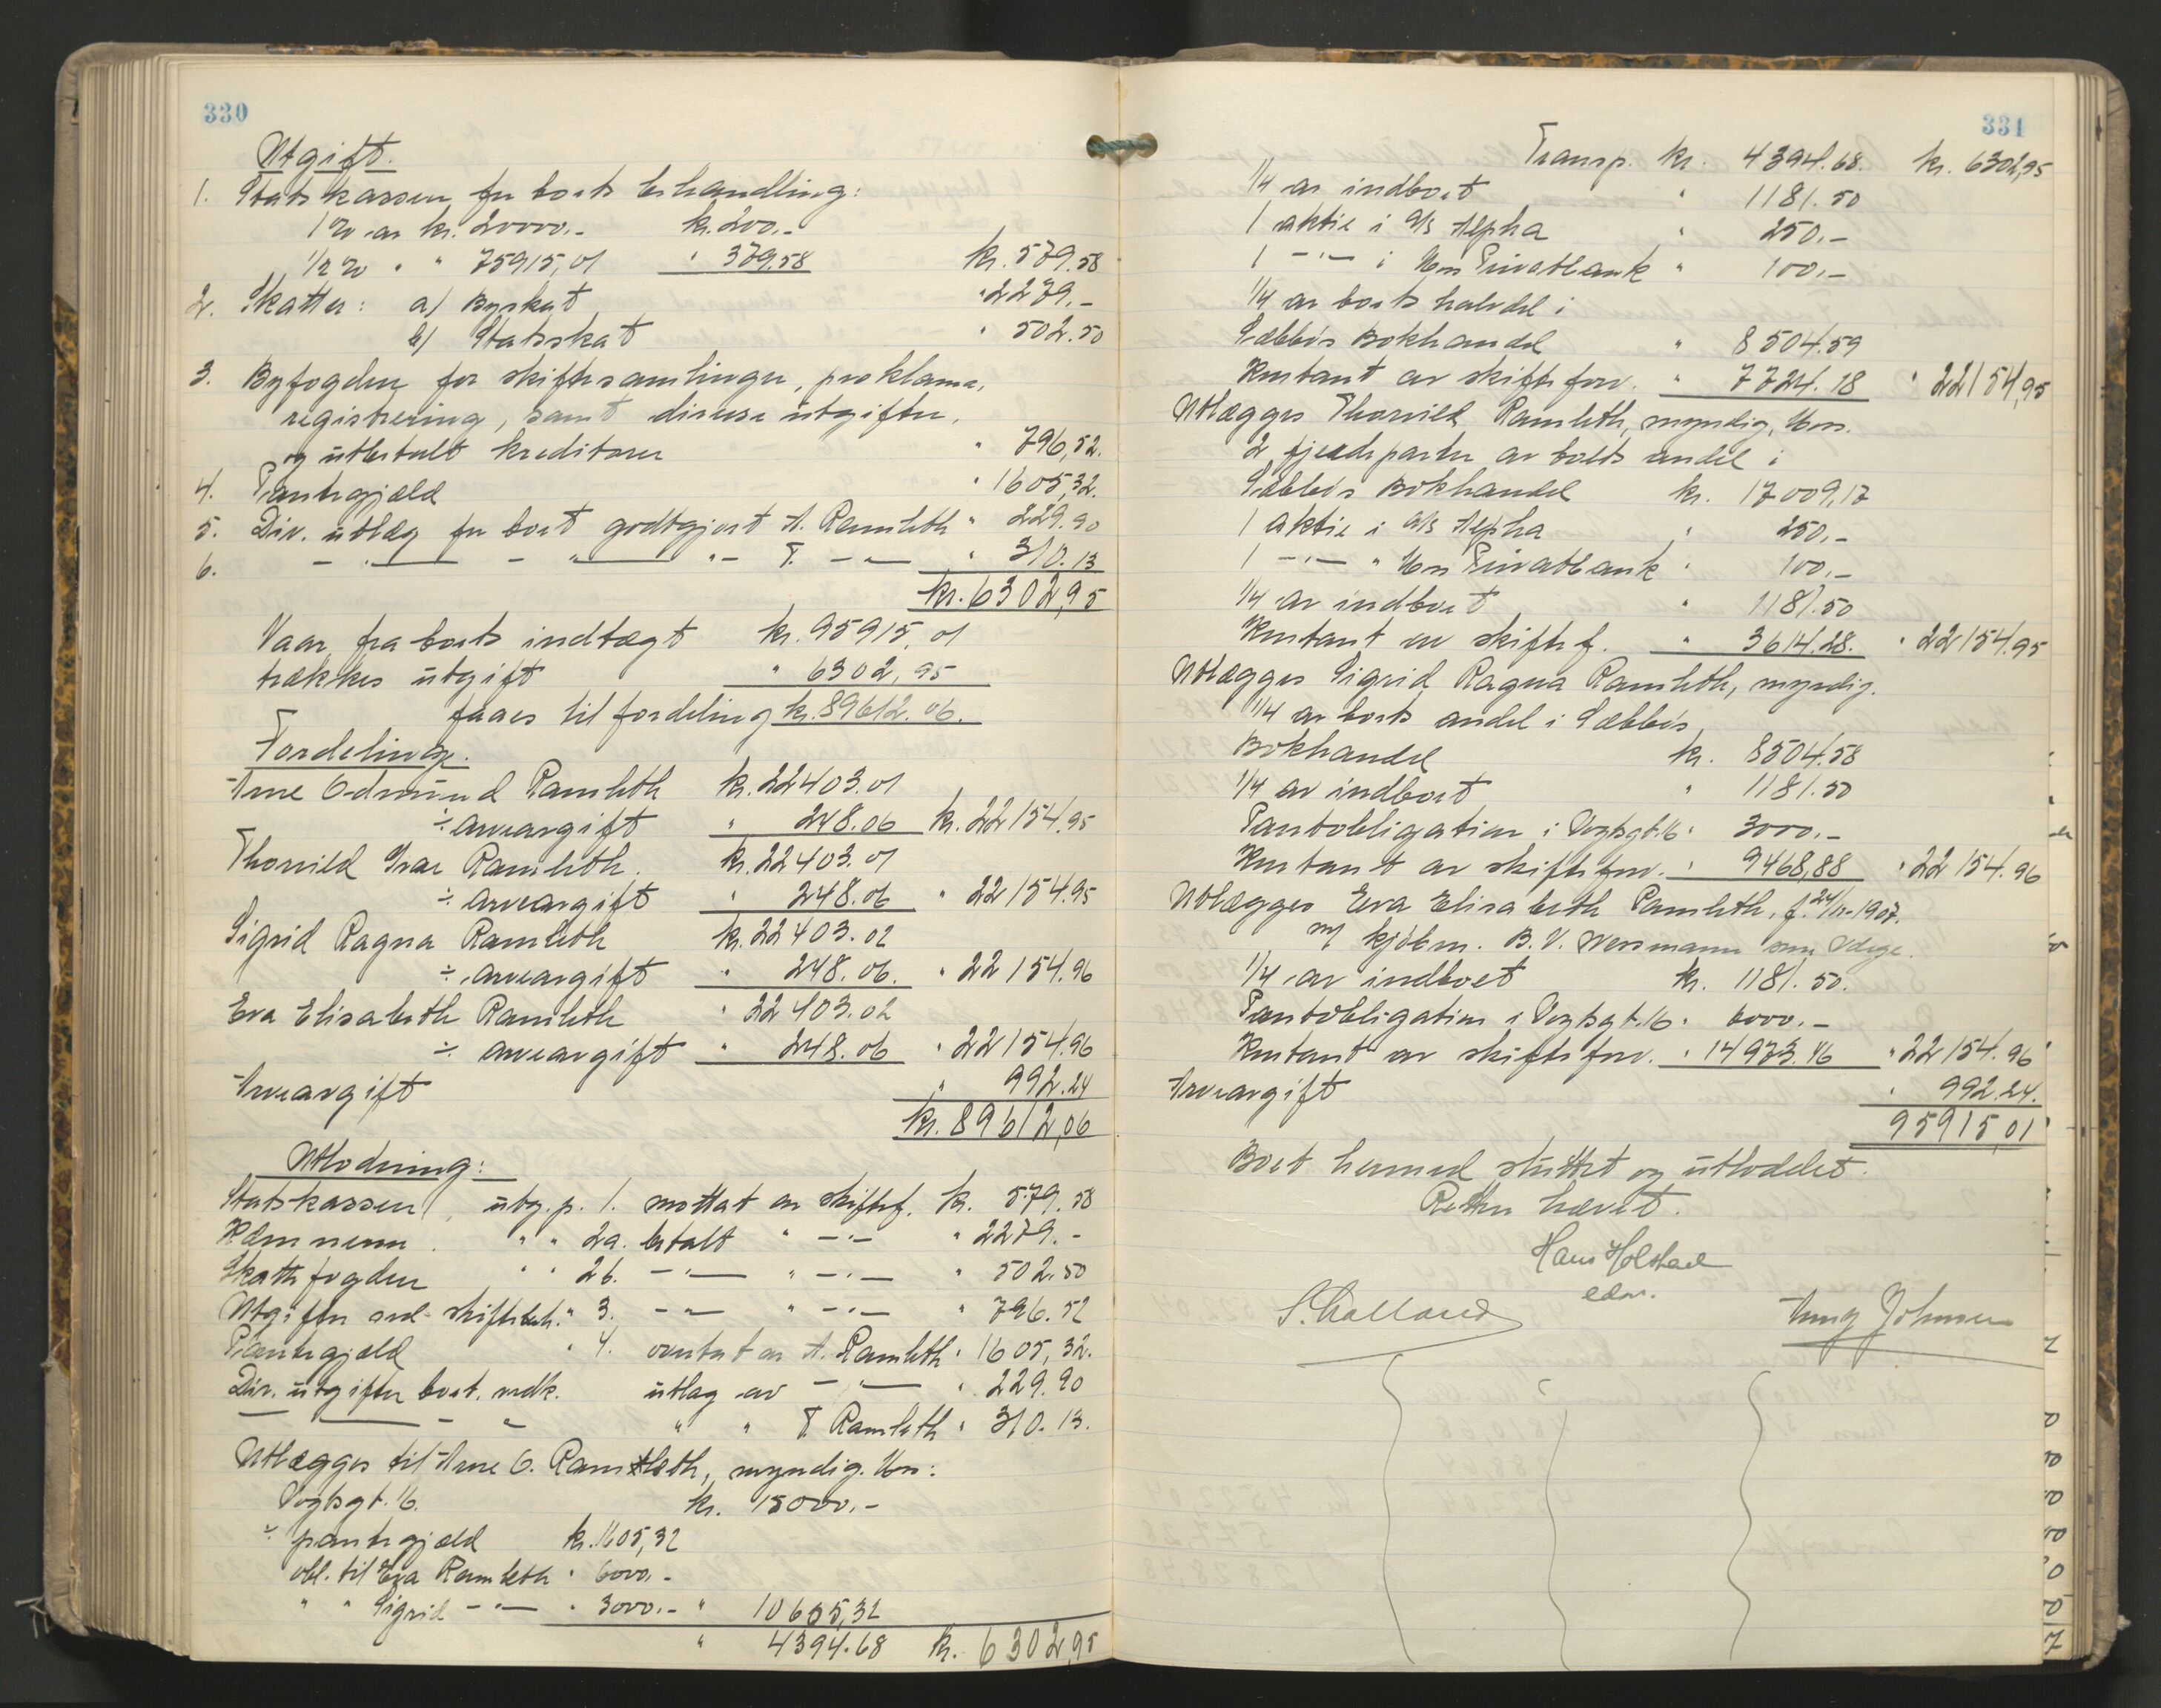 330
Utgift.
1. Statskassen for boets behandling:
1 % av kr. 20000.- kr. 200.-
1/2 % " " 75915,01 " 379.58 kr. 579.58
2. Skatter: a) Byskat " 2279.-
b) Statsskat " 502.50
3. Byfogden for skiftesamlinger, proklama,
registrering, samt diverse utgifter,
og utbetalt kreditorer " 796,52.
4. Pantegjæld " 1605,32.
5. Div. utlæg for boet godtgjort A. Ramleth " 229.90
6. - " - " - " - T. - " - " 310.13
kr. 6302,95
Naar fra boets indtægt kr. 95915,01
trækkes utgift " 6302,95
faaes til fordeling kr. 89612.06.
Fordeling.
Arne Odmund Ramleth kr. 22403.01
÷ arveavgift " 248.06 kr. 22154.95
Thorvild Ivar Ramleth. kr. 22403.01
÷ arveavgift " 248.06 " 22154.95
Sigrid Ragna Ramleth kr. 22403.02
÷ arveavgift " 248.06. " 22154.96
Eva Elisabeth Ramleth " 22403.02
÷ arveavgift " 248.06 " 22154.96
Arveavgift " 992.24
kr. 89612,06
Utlodning:
Statskassen, utg. p. 1. mottat av skiftef. kr. 579.58
Kæmneren " " 2a. betalt " - " - " 2279.-
Skattefogden " " 2b. - " - " - " - " 502.50
Utgifter ved skiftebeh. " 3. - " - " - " - " 796.52
Pantegjæld " 4. overtat av A. Ramleth " 1605,32.
Div. utgifter boet vedk. utlag av - " - " 229.90
- " - " " T. Ramleth " 310.13.
Utlægges til Arne O. Ramleth, myndig, :
Vogtsgt. 16. kr. 15000.-
÷ pantegjæld kr. 1605,32
obl. til Eva Ramleth " 6000.-
" " Sigrid - " - " 3000.- " 10605,32
" 4394.68 kr. 6302,95
331
Transp. kr. 4394.68. kr. 6302,95
1/4 av indboet " 1181.50
1 aktie i A/S Alpha " 250.-
1 - " - i Privatbank " 100.-
1/4 av boets halvdel i
Sæbbøs Bokhandel " 8504.59
Kontant av skifteforv. " 7724.18 " 22154,95
Utlægges Thorvild Ramleth, myndig,
2 fjerdeparter av boets andel i
Sæbbøs Bokhandel kr. 17009,17
1 aktie i A/S Alpha " 250.-
1 - " - " Privatbank " 100.-
1/4 av indboet " 1181.50
Kontant av skiftef. " 3614.28. " 22154.95
Utlægges Sigrid Ragna Ramleth, myndig.
1/4 av boets andel i Sæbbøs
Bokhandel kr. 8504.58
1/4 av indboet " 1181.50
Pantobligation i Vogtsgt. 16 " 3000.-
Kontant av skifteforv. " 9468,88 " 22154.96
Utlægges Eva Elisabeth Ramleth, f. 1907.
m/ kjøbm. B. V. Wessmann som Værge.
1/4 av indboet kr. 1181.50.
Pantobligation i Vogtsgt. 16 " 6000.-
Kontant av skifteforv. " 14973.46 " 22154.96
Arveavgift " 992.24.
95915,01
Boet hermed sluttet og utloddet.
Retten hævet.
Hans Holstad
edsv.
Johnsen